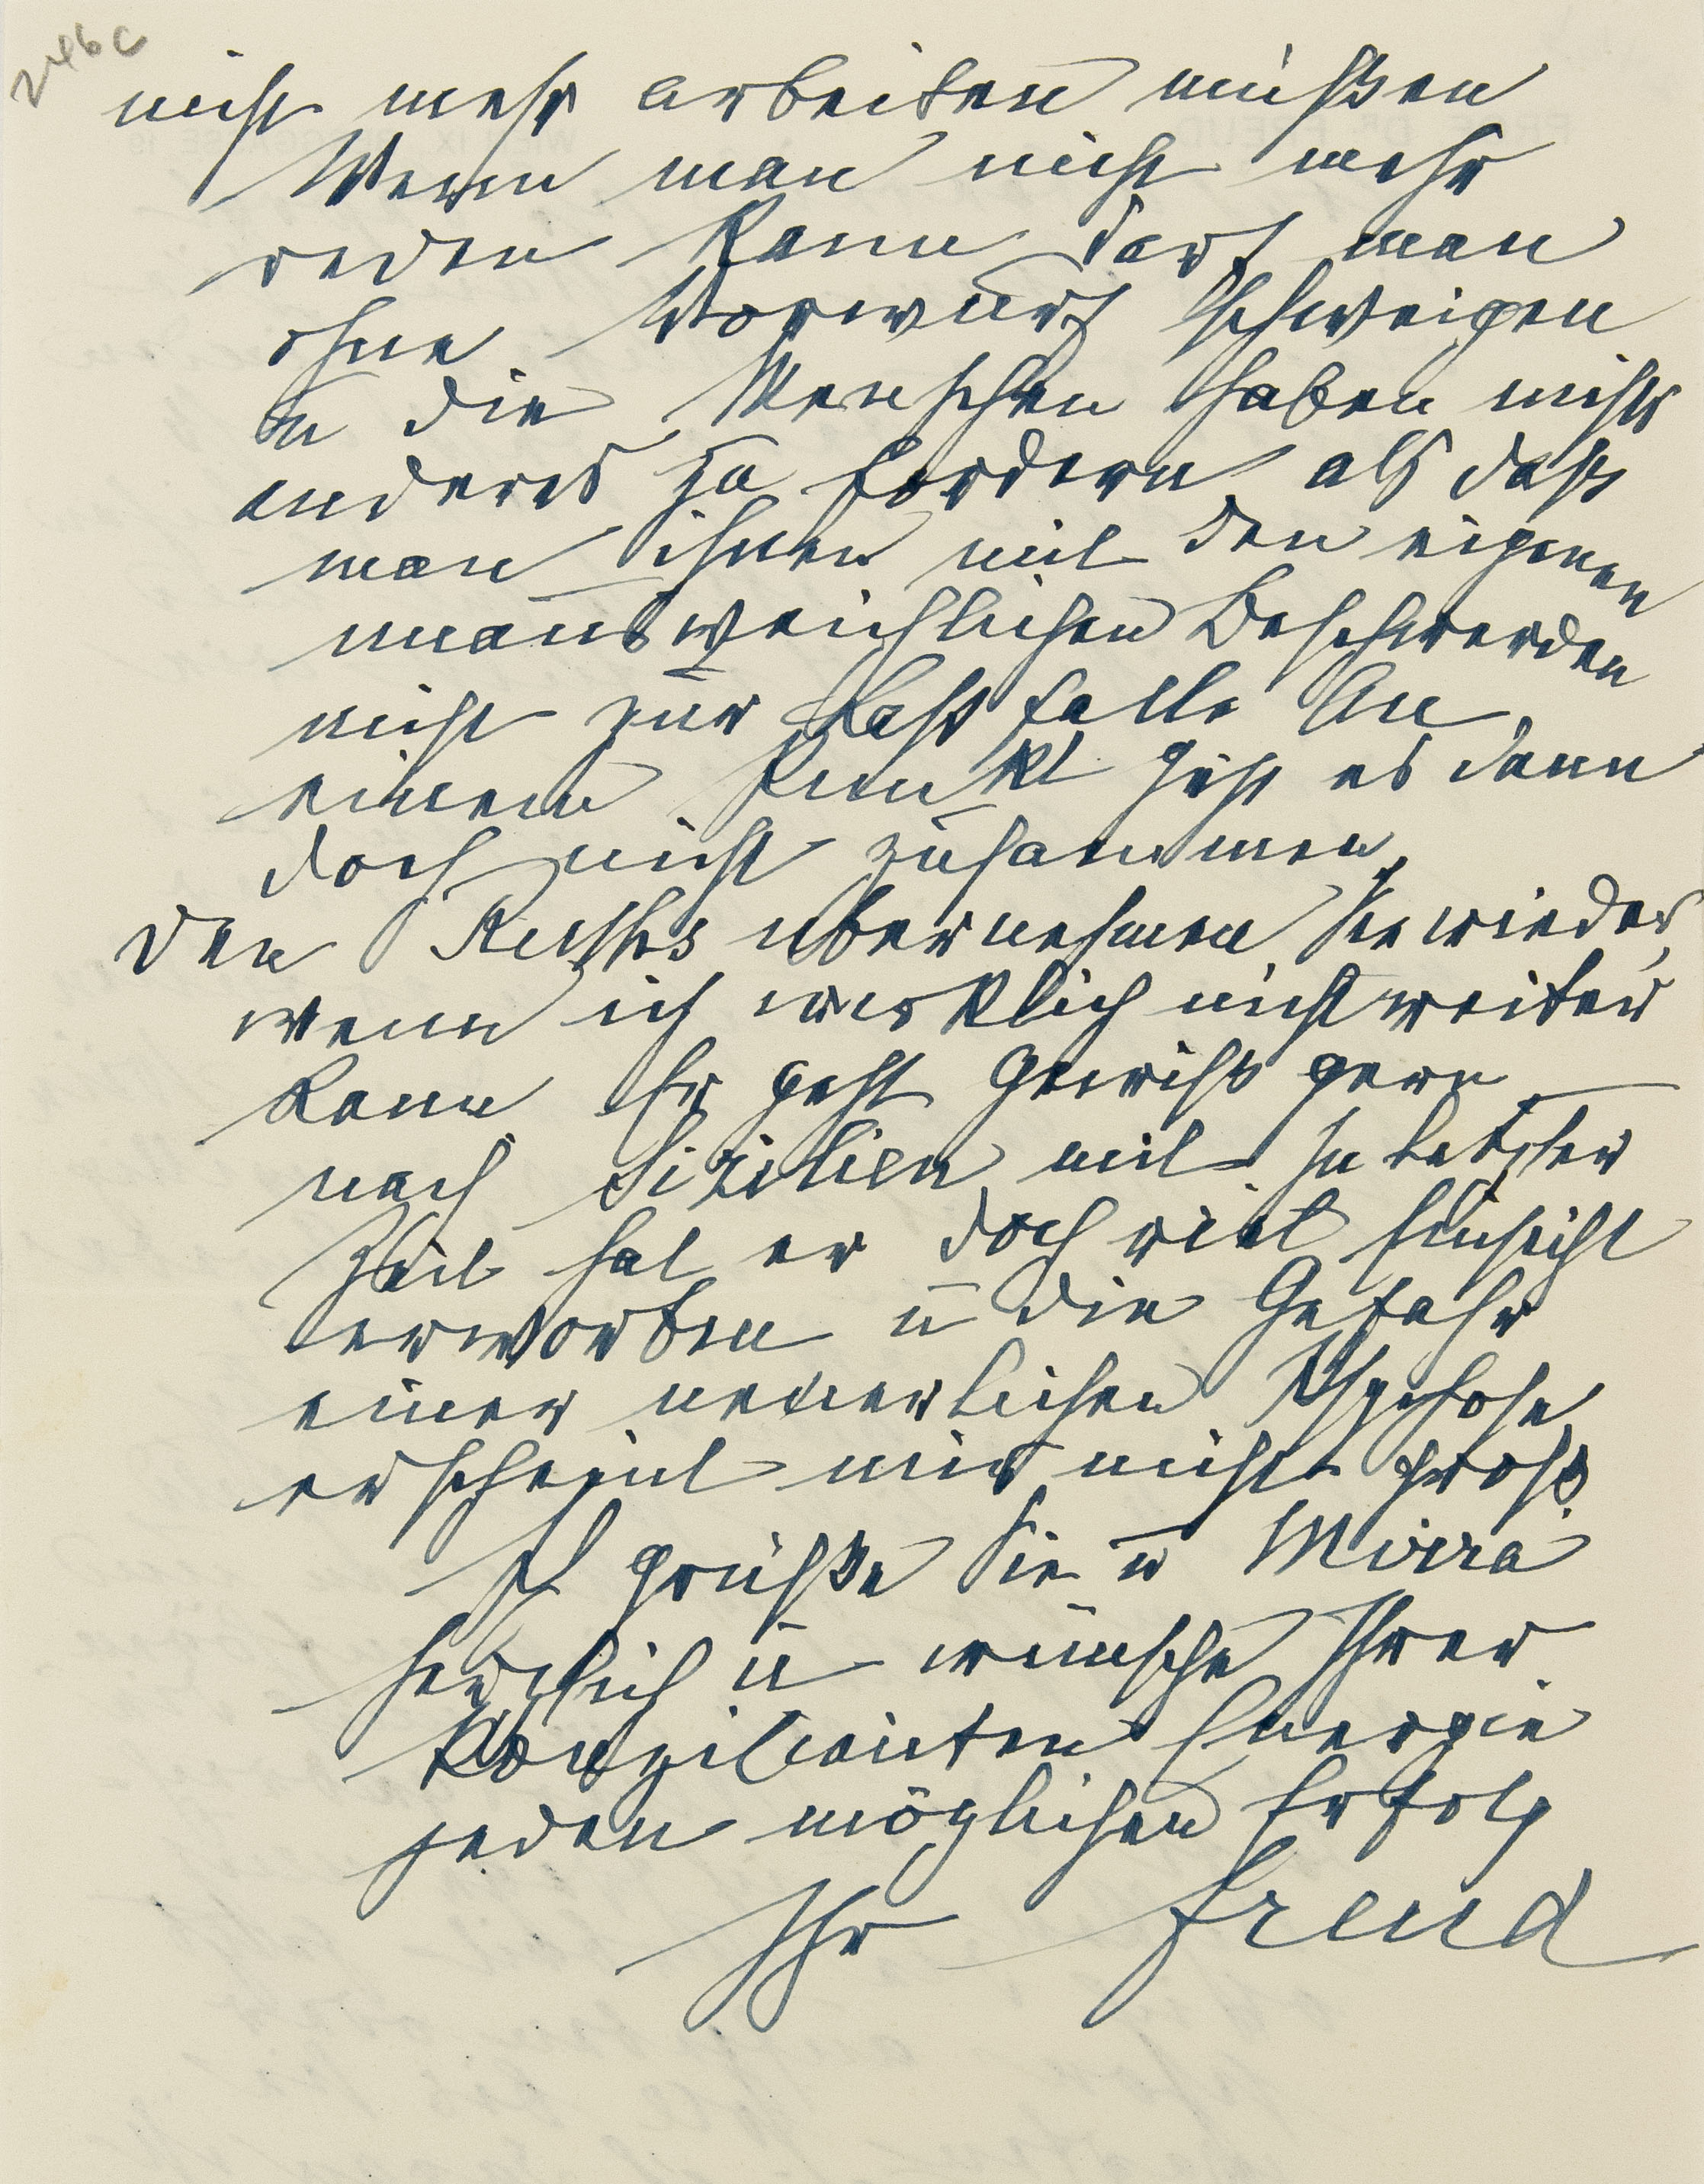 246 c
nicht mehr arbeiten müßen
Wenn man nicht mehr
reden kann, darf man
ohne Vorwurf schweigen
u die Menschen haben nichts
anderes zu fordern, als daß
man ihnen mit den eigenen
unausweichlichen Beschwerden
nicht zur Last falle. An
einem Punkt geht es dann
doch nicht zusammen,
den übernehmen Sie wieder,
wenn ich wirklich nicht weiter
kann. Er geht gewiß gern
nach Sizilien mit. In letzter
Zeit hat er doch viel Einsicht
erworben u die Gefahr
einer neuerlichen Psychose
erscheint mir nicht groß.
Ich grüße Sie u Mirra
herzlich u wünsche Ihrer
konzilianten Energie
jeden möglichen Erfolg
Ihr Freud